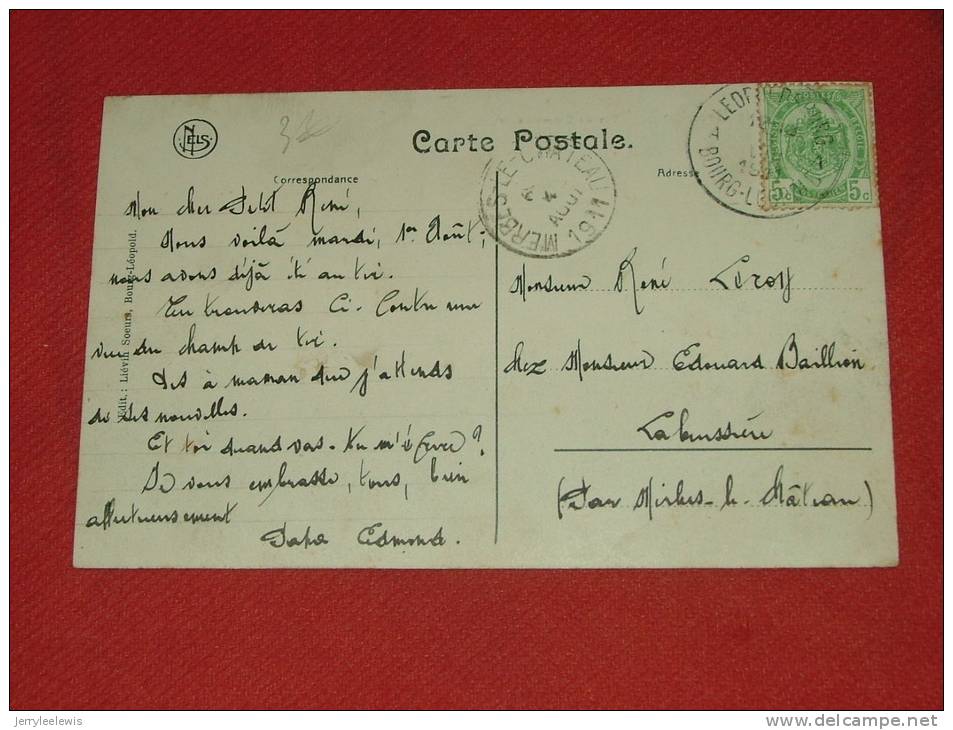 NELS
Carte Postale.
Correspondance
Adresse
Edit.: Liévin Soeurs, Bourg-Léopold.
Mon cher Petit René,
Nous voilà mardi, 1er Août;
nous avons déjà été au tir.
Tu trouveras Ci-Contre une
vue du champ de tir.
Dis à maman que j'attends
de ses nouvelles.
Et toi quand vas-tu m'écrire?
Je vous embrasse, tous, bien
affectueusement
Papa Edmond.
MERBES-LE-CHATEAU
4
AOUT
1911
LEOPOLD
BOURG-LE
5c 5c
Monsieur René Leroy
chez Monsieur Edouard Baillion
Labuissière
(Par Mirbes-le-Château)
jerryleelewis
delcampe.net